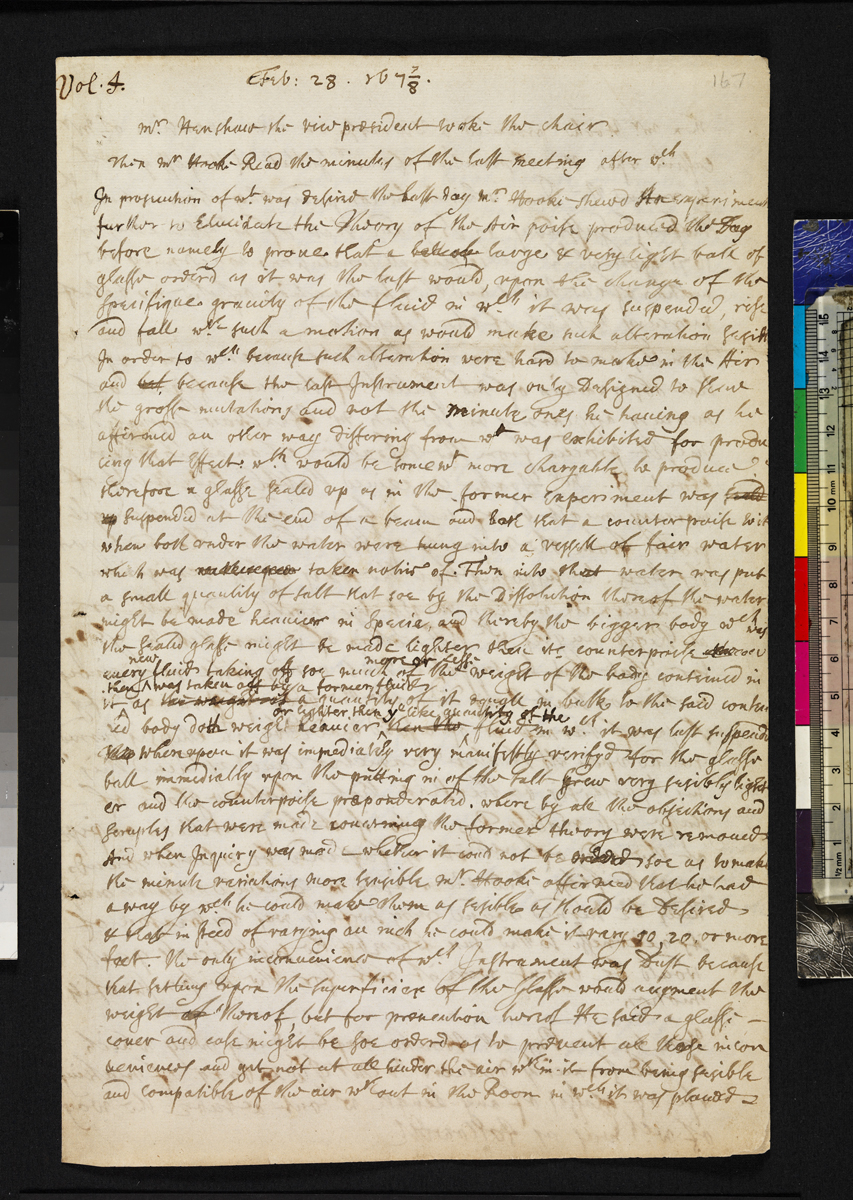 Vol. 4. Feb: 28. 167 7/8. 167
mr. Henshaw the vice president tooke the chair
Then mr Hooke Read the minutes of the last meeting after wch
In prosecution of wt was desired the last day mr. Hooke shewd an experiment
further to Elucidate the Theory of the Air poise produced the Day
before namely to proue that a large & very light ball of
glasse orderd as it was the last would, upon the change of the
Specifique gravity of the fluid in wch it was suspended, rise
and fall wth such a motion as would make such alteration sensible
In order to wch because such alteration were hard to make in the Air
and but because the last Instrument was only Designed to shew
the grosse mutations and not the minute ones he having as he
affirmed an other way differing from wt was exhibited for produ
cing that effect. wch would be somewt more chargable he produce
therefore a glasse sealed up as in the former experiment was
up suspended at the end of a beam and that a counterpoise
when both under the water were hung into a vessell of fair water
which was taken notice of. Then into that water was put
a small quantity of salt that soe by the Dissolution thereof the water
might be made heavier in Specie and thereby the bigger body wch was
the seald glasse might be made lighter then its counterpoise
every new fluid taking off soe much more or lesse of the weight of the body contained in
then was taken off by a former fluid
it as a quantity of it equall in bulk to the said contai
ned body doth weigh heavier or lighter then ye like quantity of the fluid in wch it was last suspended
whereupon it was immediatly very manifestly verifyd for the glasse
ball immediatly upon the putting in of the salt grew very sensibly light
er and the counterpoise preponderated. whereby all the objections and
scruples that were made concerning the former theory were removed
And when Inquiry was made whether it could not be orderd soe as to make
the minute variations more sensible mr. Hooke affirmed that he had
a way by wch he could make them as sensible as should be Desired
& that in steed of varying an inch he could make it vary 10, 20. or more
feet. the only inconvenience of wch Instrument was Dust because
that setling upon the superficies of the Glasse would augment the
weight of thereof, but for prevention hereof He said a glasse
cover and case might be soe orderd as to prevent all those incon
veniences and yet not at all hinder the air wthin it from being sensible
and compatible of the air wthout in the Room in wch it was placed